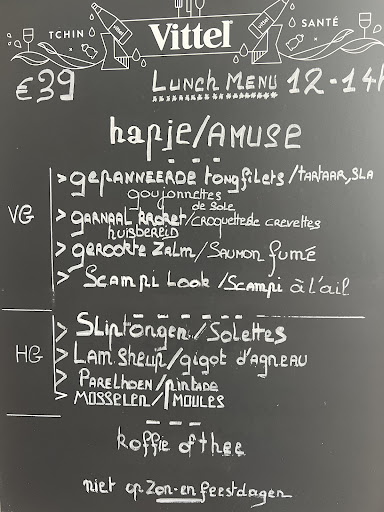 TCHIN
SANTÉ
Vittel
€39 LUNCH MENU 12-14h
hapje/AMUSE
VG
> gepanneerde tongfilets/tartaar, sla
goujonnettes de sole
> garnaal kroket/croquette de crevettes
huisbereid
> gerookte zalm/Saumon fumé
> Scampi look/Scampi à l'ail
HG
> Sliptongen/Solettes
> Lamsheup/gigot d'agneau
> Parelhoen/pintade
> Mosselen/moules
koffie of thee
niet op zon- en feestdagen